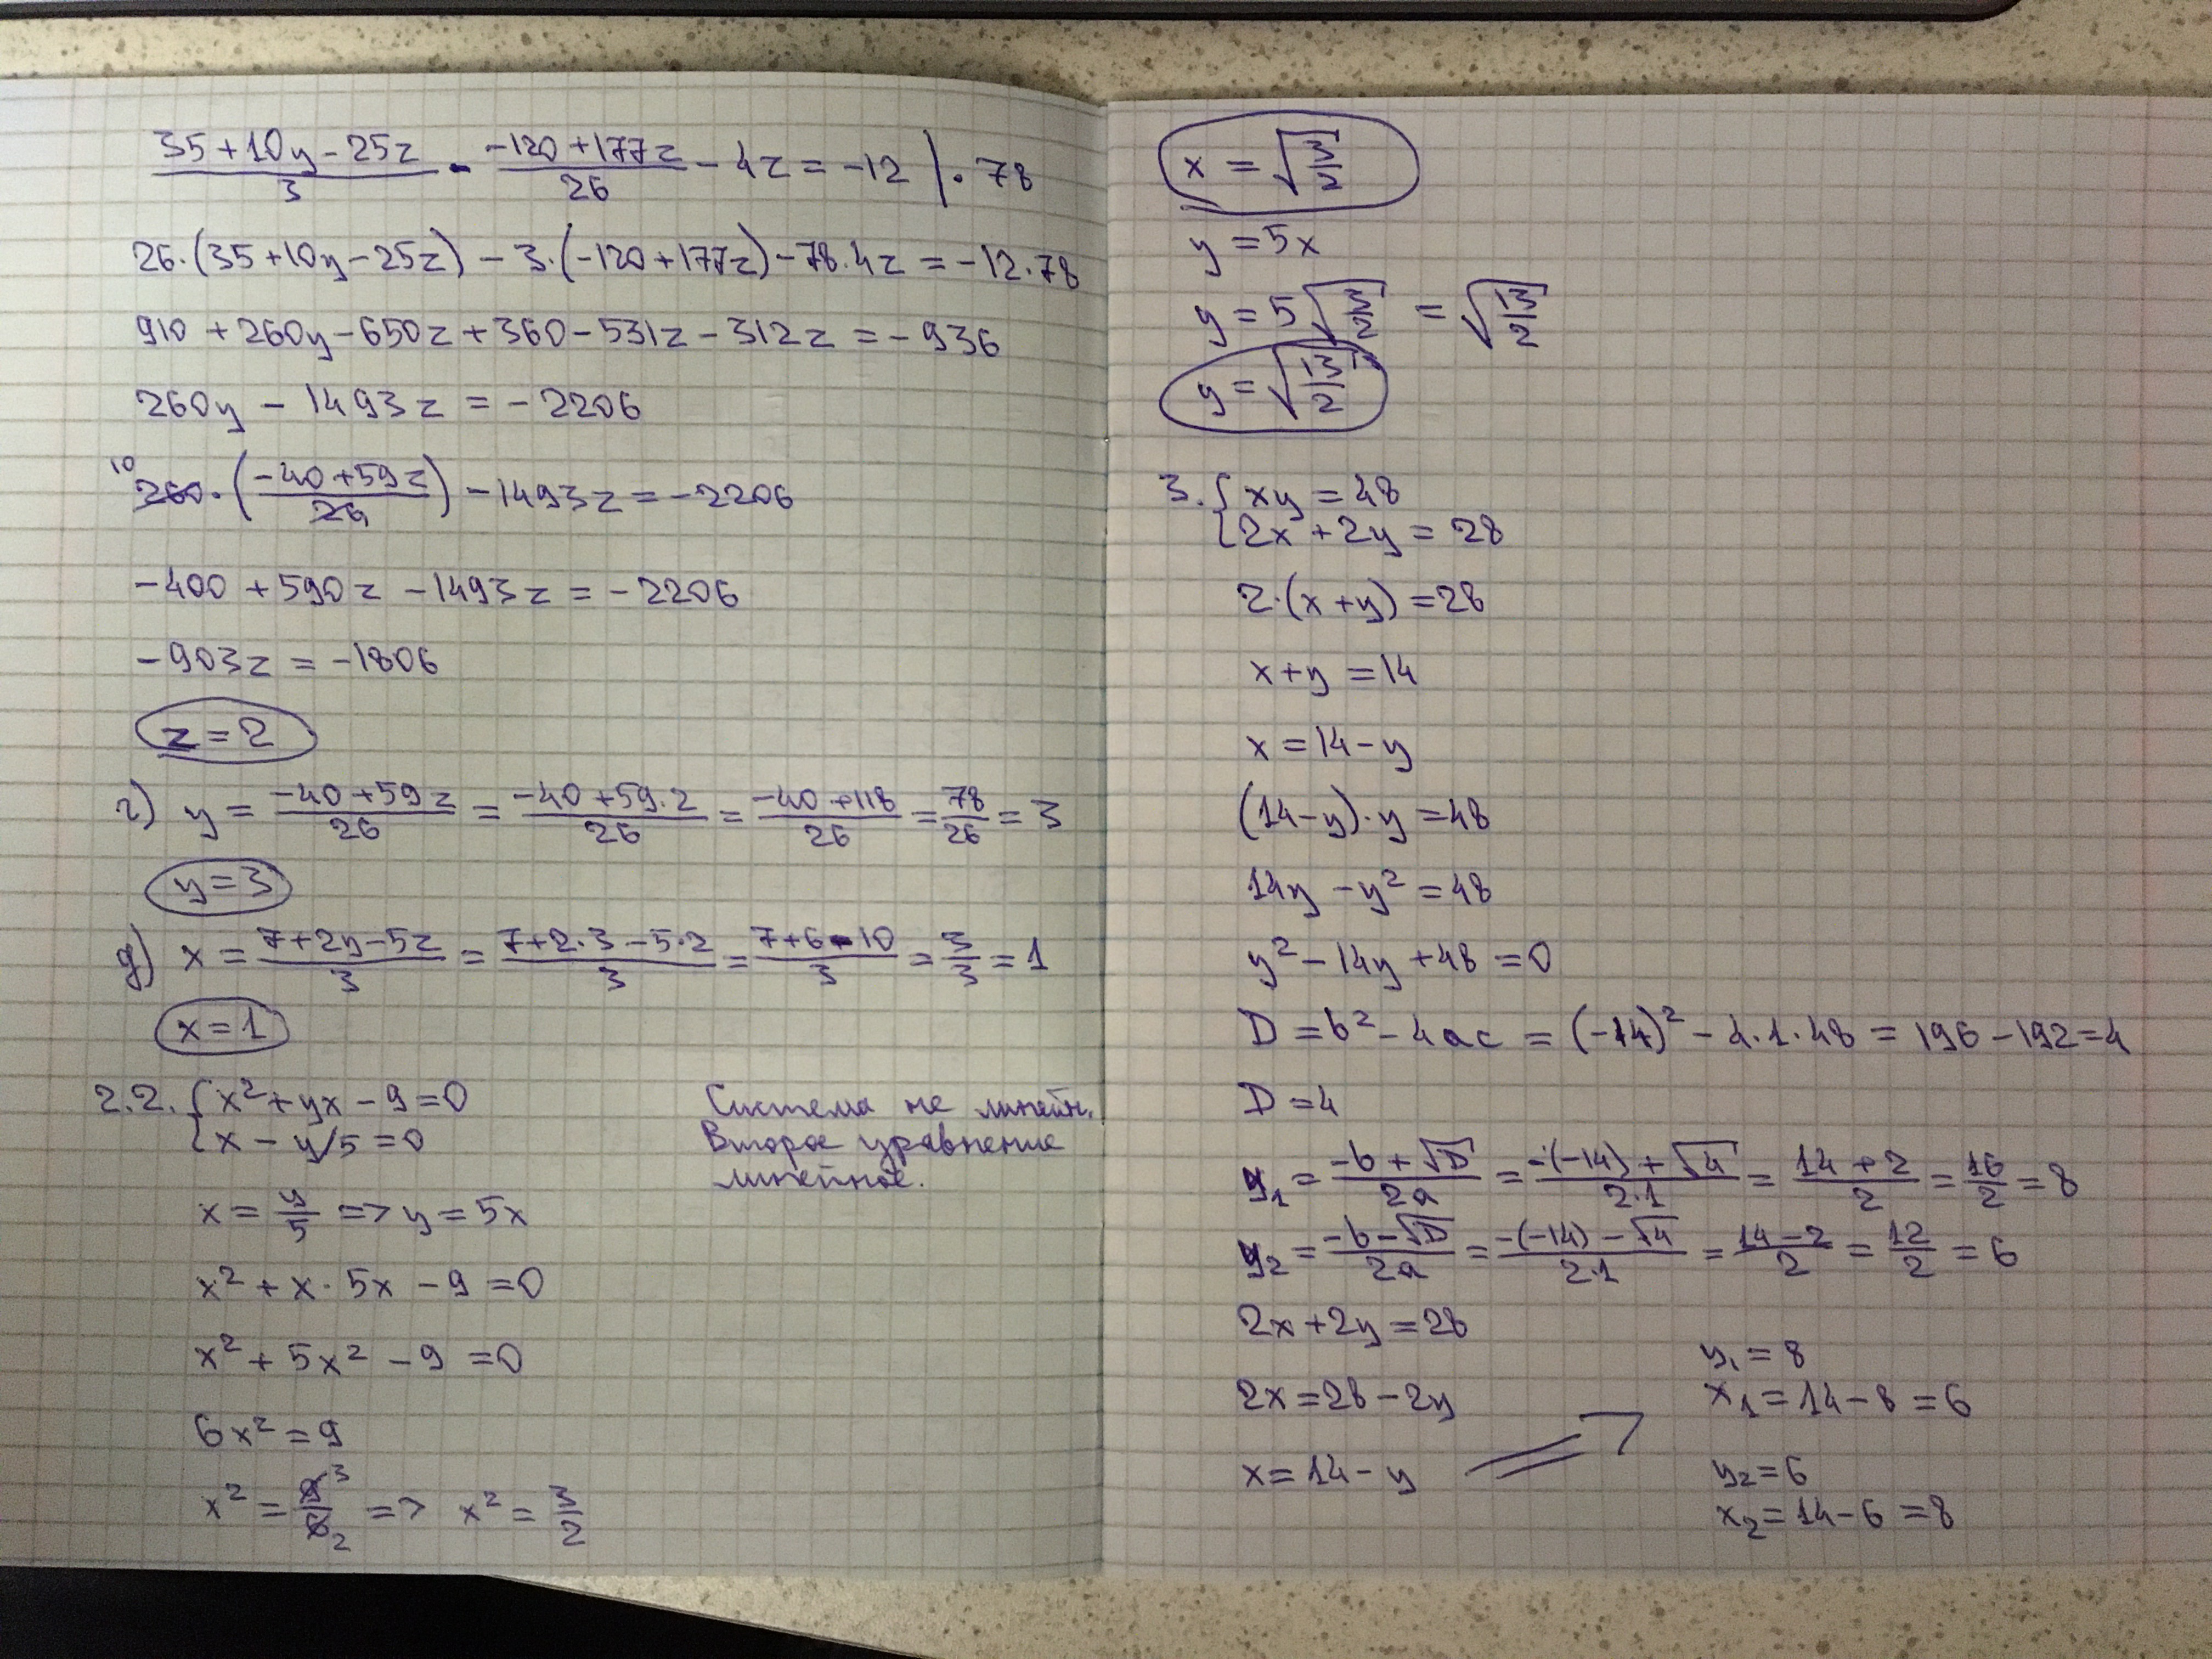 (35+10y-25z)/3 - (-120+177z)/26 - 4z = -12 | · 78
26·(35+10y-25z) - 3·(-120+177z) - 78·4z = -12·78
910 + 260y - 650z + 360 - 531z - 312z = -936
260y - 1493z = -2206
10 260·((-40+59z)/26) - 1493z = -2206
-400 + 590z - 1493z = -2206
-903z = -1806
z = 2
г) y = (-40+59z)/26 = (-40+59·2)/26 = (-40+118)/26 = 78/26 = 3
y = 3
д) x = (7+2y-5z)/3 = (7+2·3-5·2)/3 = (7+6-10)/3 = 3/3 = 1
x = 1
2.2. { x² + yx - 9 = 0
x - y/5 = 0
Система не линейн.
Второе уравнение
линейное.
x = y/5 => y = 5x
x² + x·5x - 9 = 0
x² + 5x² - 9 = 0
6x² = 9
x² = 9 3/6 2 => x² = 3/2
x = √(3/2)
y = 5x
y = 5√(3/2) = √(13/2)
y = √(13/2)
3. { xy = 48
2x + 2y = 28
2·(x+y) = 28
x + y = 14
x = 14 - y
(14-y)·y = 48
14y - y² = 48
y² - 14y + 48 = 0
D = b² - 4ac = (-14)² - 4·1·48 = 196 - 192 = 4
D = 4
y₁ = (-b+√D)/2a = (-(-14)+√4)/2·1 = (14+2)/2 = 16/2 = 8
y₂ = (-b-√D)/2a = (-(-14)-√4)/2·1 = (14-2)/2 = 12/2 = 6
2x + 2y = 28
2x = 28 - 2y
x = 14 - y
y₁ = 8
x₁ = 14 - 8 = 6
y₂ = 6
x₂ = 14 - 6 = 8